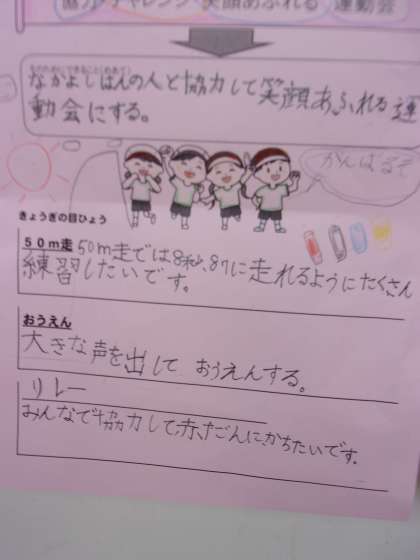 協力・チャレンジ・笑顔あふれる 運動会
なかよしはんの人と協力して笑顔あふれる運
動会にする。
がんばるぞ
きょうぎの目ひょう
50m走 50m走では8秒、87に走れるようにたくさん
練習したいです。
おうえん
大きな声を出して おうえんする。
リレー
みんなで協力して、赤だんにかちたいです。